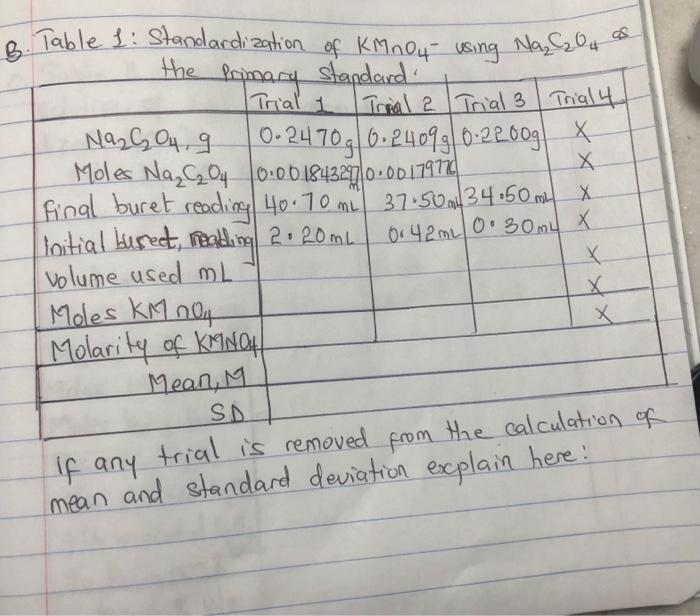 B. Table 1: Standardization of KMnO4- using Na2C2O4 as
the Primary Standard.
Trial 1 Trial 2 Trial 3 Trial 4
Na2C2O4, g 0.2470g 0.2409g 0.2200g X
Moles Na2C2O4 0.001843297 0.00179776 X
Final buret reading 40.70 mL 37.50mL 34.50mL X
Initial buret, reading 2.20mL 0.42mL 0.30mL X
Volume used mL X
Moles KMnO4 X
Molarity of KMNO4 X
Mean, M
SD
If any trial is removed from the calculation of
mean and standard deviation explain here: